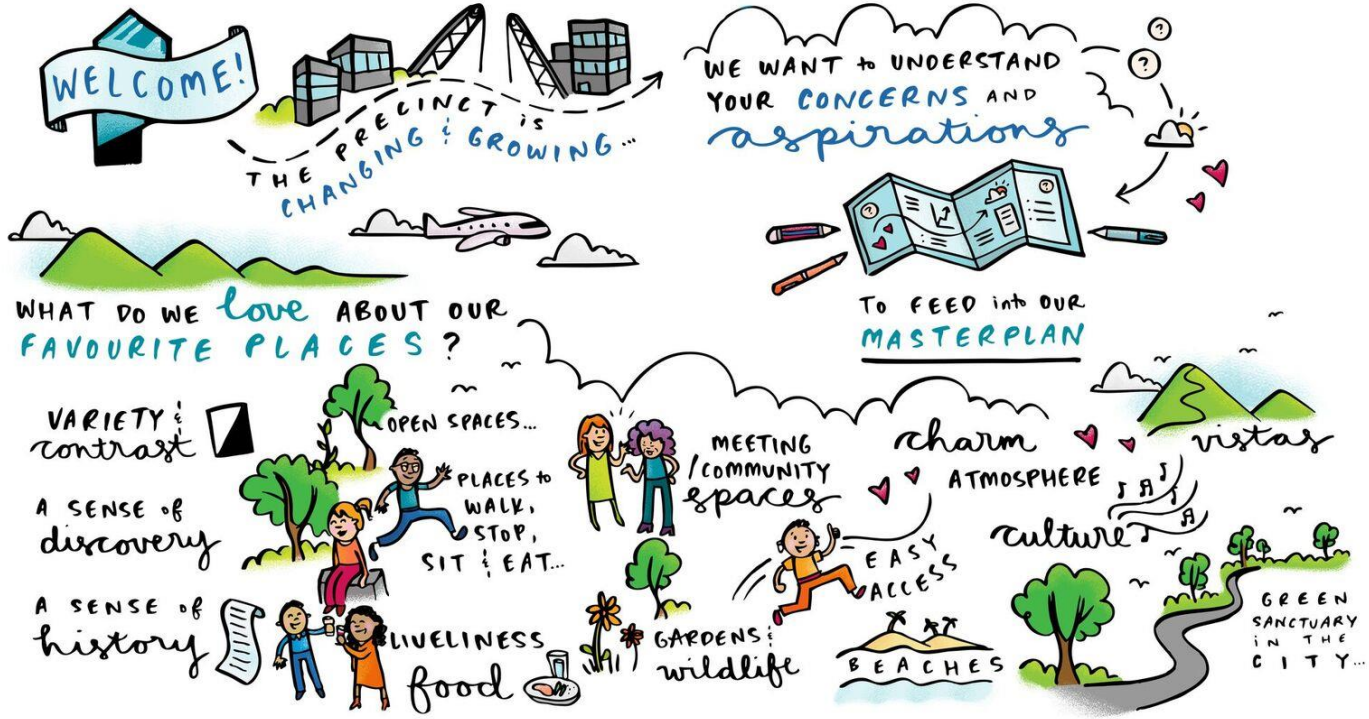 WELCOME!
THE PRECINCT is
CHANGING & GROWING...
WE WANT to UNDERSTAND
YOUR CONCERNS AND
aspirations
TO FEED into OUR
MASTERPLAN
WHAT DO WE love ABOUT OUR
FAVOURITE PLACES?
VARIETY &
contrast
A SENSE of
discovery
A SENSE of
history
OPEN SPACES...
PLACES to
WALK,
STOP,
SIT & EAT...
LIVELINESS
food
MEETING
/COMMUNITY
spaces
GARDENS &
wildlife
charm
ATMOSPHERE
culture
EASY
ACCESS
BEACHES
vistas
GREEN
SANCTUARY
iN THE
CITY...